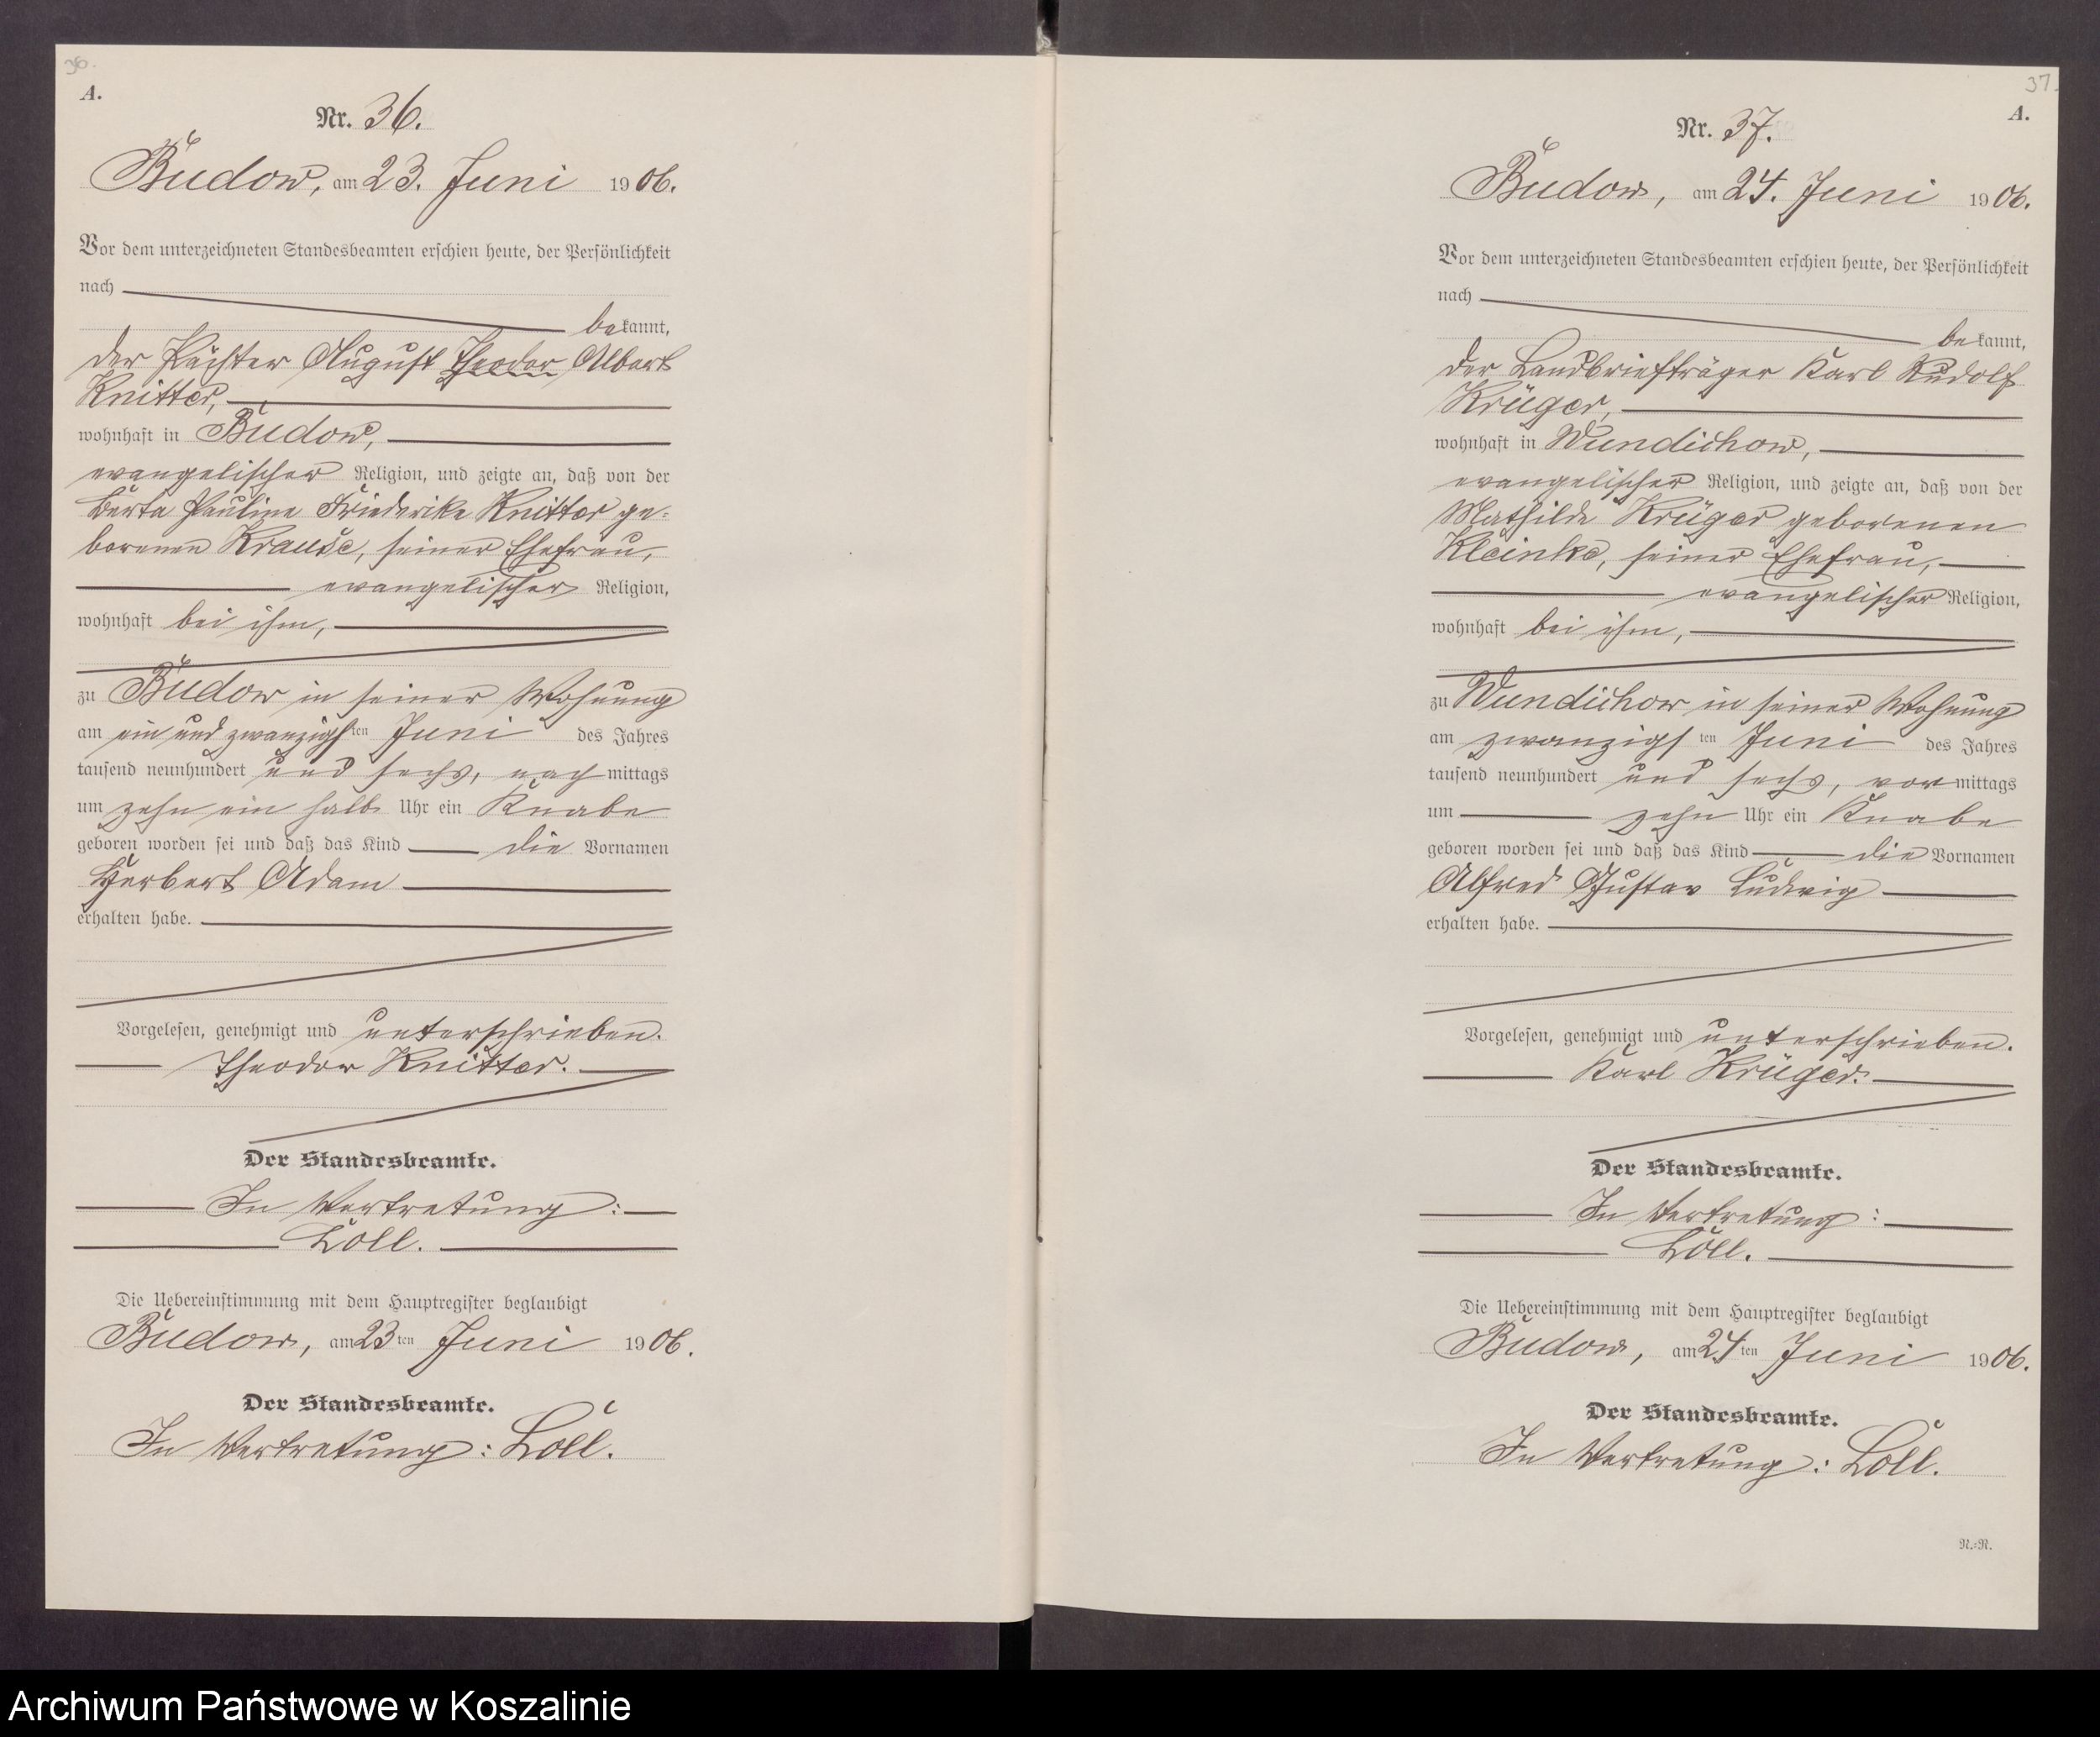 36.
A.
Nr. 36.
Budow, am 23. Juni 1906.
Vor dem unterzeichneten Standesbeamten erschien heute, der Persönlichkeit
nach
bekannt,
der Pächter August Theodor Albert
Knitter,
wohnhaft in Budow,
evangelischer Religion, und zeigte an, daß von der
Berta Pauline Friederike Knitter ge-
borenen Krause, seiner Ehefrau,
evangelischer Religion,
wohnhaft bei ihm,
zu Budow in seiner Wohnung
am ein und zwanzigsten Juni des Jahres
tausend neunhundert und sechs, nachmittags
um zehn ein halb Uhr ein Knabe
geboren worden sei und daß das Kind die Vornamen
Herbert Adam
erhalten habe.
Vorgelesen, genehmigt und unterschrieben.
Theodor Knitter.
Der Standesbeamte.
In Vertretung:
Loll.
Die Uebereinstimmung mit dem Hauptregister beglaubigt
Budow, am 23ten Juni 1906.
Der Standesbeamte.
In Vertretung: Loll.
37.
A.
Nr. 37.
Budow, am 24. Juni 1906.
Vor dem unterzeichneten Standesbeamten erschien heute, der Persönlichkeit
nach
bekannt,
der Landbriefträger Karl Rudolf
Krüger,
wohnhaft in Wundichow,
evangelischer Religion, und zeigte an, daß von der
Mathilde Krüger geborenen
Kleinke, seiner Ehefrau,
evangelischer Religion,
wohnhaft bei ihm,
zu Wundichow in seiner Wohnung
am zwanzigsten Juni des Jahres
tausend neunhundert und sechs, vormittags
um zehn Uhr ein Knabe
geboren worden sei und daß das Kind die Vornamen
Alfred Gustav Ludwig
erhalten habe.
Vorgelesen, genehmigt und unterschrieben.
Karl Krüger.
Der Standesbeamte.
In Vertretung:
Loll.
Die Uebereinstimmung mit dem Hauptregister beglaubigt
Budow, am 24ten Juni 1906.
Der Standesbeamte.
In Vertretung: Loll.
N.=R.
Archiwum Państwowe w Koszalinie